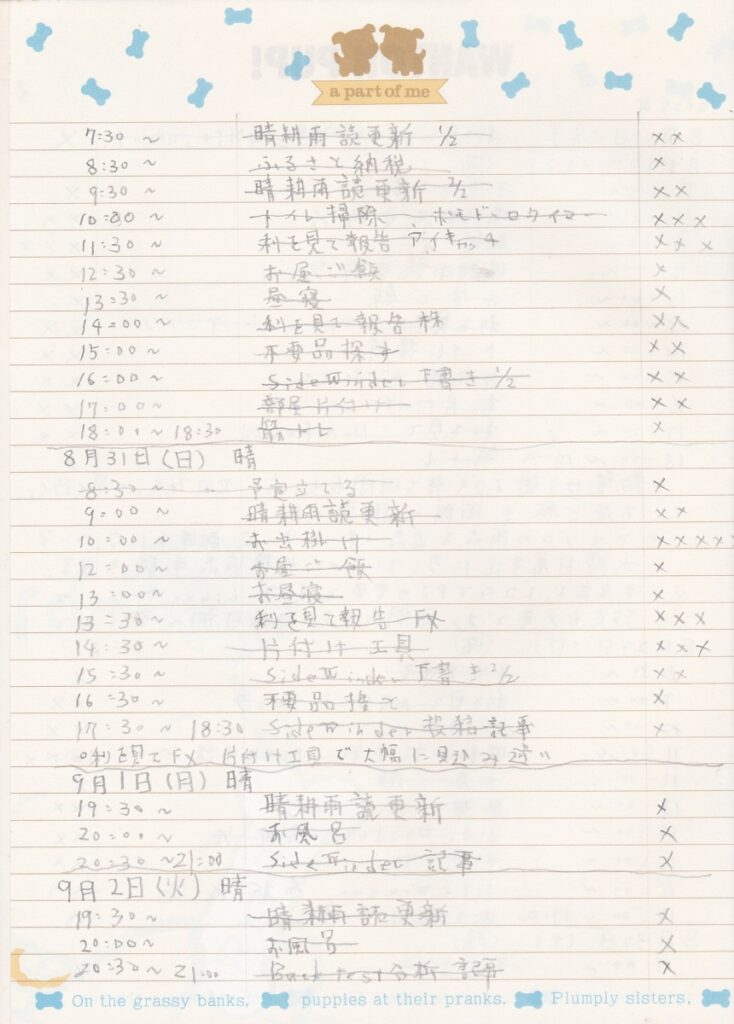 a part of me
7:30 ~ 晴耕雨読更新 1/2 ××
8:30 ~ ふるさと納税 ×
9:30 ~ 晴耕雨読更新 2/2 ××
10:00 ~ トイレ掃除 ポモドーロタイマー ×××
11:30 ~ 利を見て報告 アイキャッチ ×××
12:30 ~ お昼ご飯 ×
13:30 ~ 昼寝 ×
14:00 ~ 利を見て報告 株 ××
15:00 ~ 不要品探す ××
16:00 ~ SideWinder 下書き 1/2 ××
17:00 ~ 部屋片付け ××
18:00 ~ 18:30 筋トレ ×
8月31日(日) 晴
8:30 ~ 予定立てる ×
9:00 ~ 晴耕雨読更新 ××
10:00 ~ お出掛け ×××××
12:00 ~ お昼ご飯 ×
13:00 ~ お昼寝 ×
13:30 ~ 利を見て報告 FX ×××
14:30 ~ 片付け工具 ×××
15:30 ~ SideWinder 下書き 2/2 ××
16:30 ~ 不要品捨て ×
17:30 ~ 18:30 SideWinder 投稿記事 ××
○利を見てFX 片付け工具で大幅に見込み違い
9月1日(月) 晴
19:30 ~ 晴耕雨読更新 ×
20:00 ~ お風呂 ×
20:30 ~ 21:00 SideWinder 記事 ×
9月2日(火) 晴
19:30 ~ 晴耕雨読更新 ×
20:00 ~ お風呂 ×
20:30 ~ 21:00 Back test分析 記事 ×
On the grassy banks, puppies at their pranks. Plumply sisters,